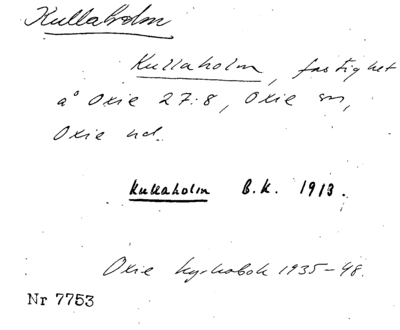 Kullaholm
Kullaholm, fastighet
å Oxie 27:8, Oxie sn,
Oxie hd.
Kullaholm B.K. 1913.
Oxie kyrkobok 1935-48.
Nr 7753